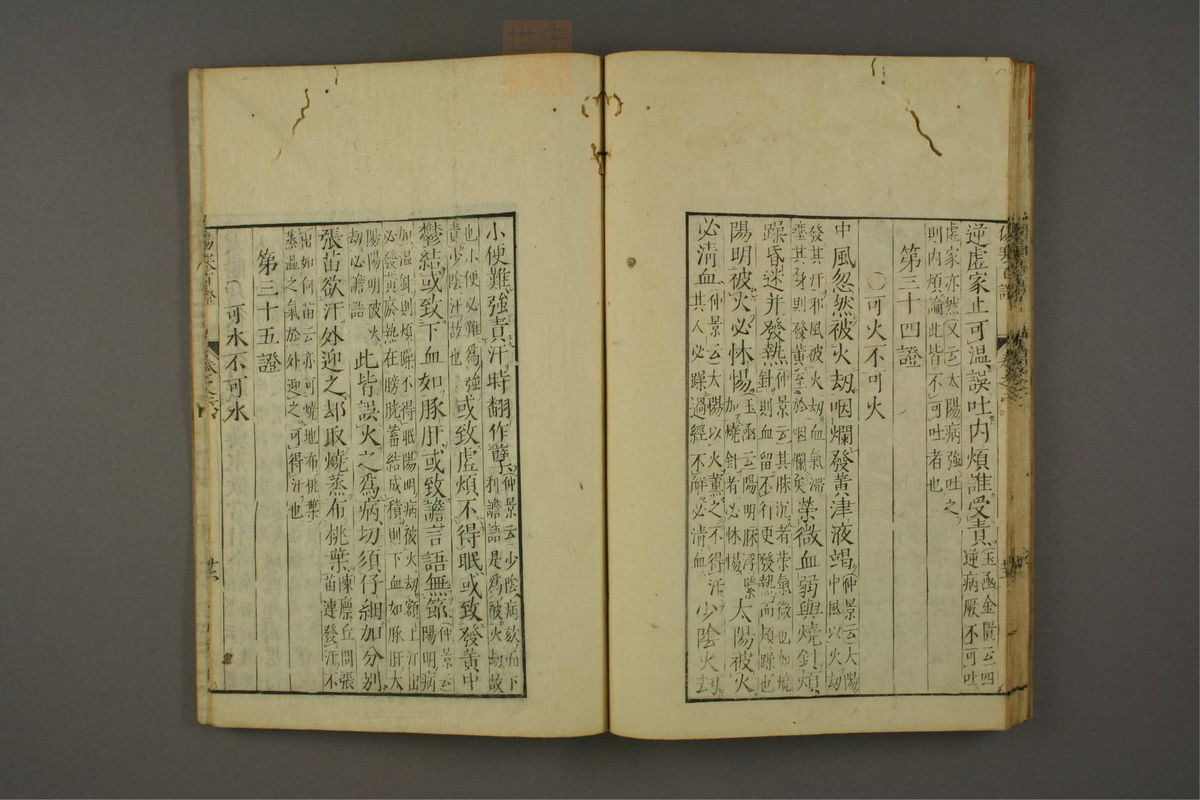 逆虛家止可溫誤吐內煩誰受責玉函金匱云四逆病厥不可吐
虛家亦然又云太陽病強吐之則內煩論此皆不可吐者也
第三十四證
〇可火不可火
中風忽然被火劫咽爛發黃津液竭仲景云太陽中風以火劫
發其汗邪風被火劫血氣滯壅其身則發黃至於咽爛矣榮微血弱與燒針煩
躁昏迷并發熱仲景云其脉沉者榮氣微也加燒針則血留不行更發熱而煩躁也
陽明被火必怵惕玉函云陽明脉浮緊加燒針者必怵惕太陽被火
必淸血仲景云太陽以火薰之不得汗其人必躁過經不解必淸血少陰火劫
小便難強責汗時翻作孽仲景云少陰病欬而下利譫語是爲被火劫故
也小便必難爲強責少陰汗故也或致虛煩不得眠或致發黃中
鬱結或致下血如豚肝或致譫言語無節仲景云陽明病
加溫針則煩躁不得眠陽明病被火劫額上汗出必發黃瘀熱在膀胱蓄結成積則下血如豚肝大
陽陽明被火劫必譫語此皆誤火之爲病切須仔細加分別
張苗欲汗外迎之却取燒蒸布桃葉陳廩丘問張苗連發汗不
出如何苗云亦可燒地布桃葉蒸溫之氣於外迎之可得汗也
第三十五證
〇可水不可水